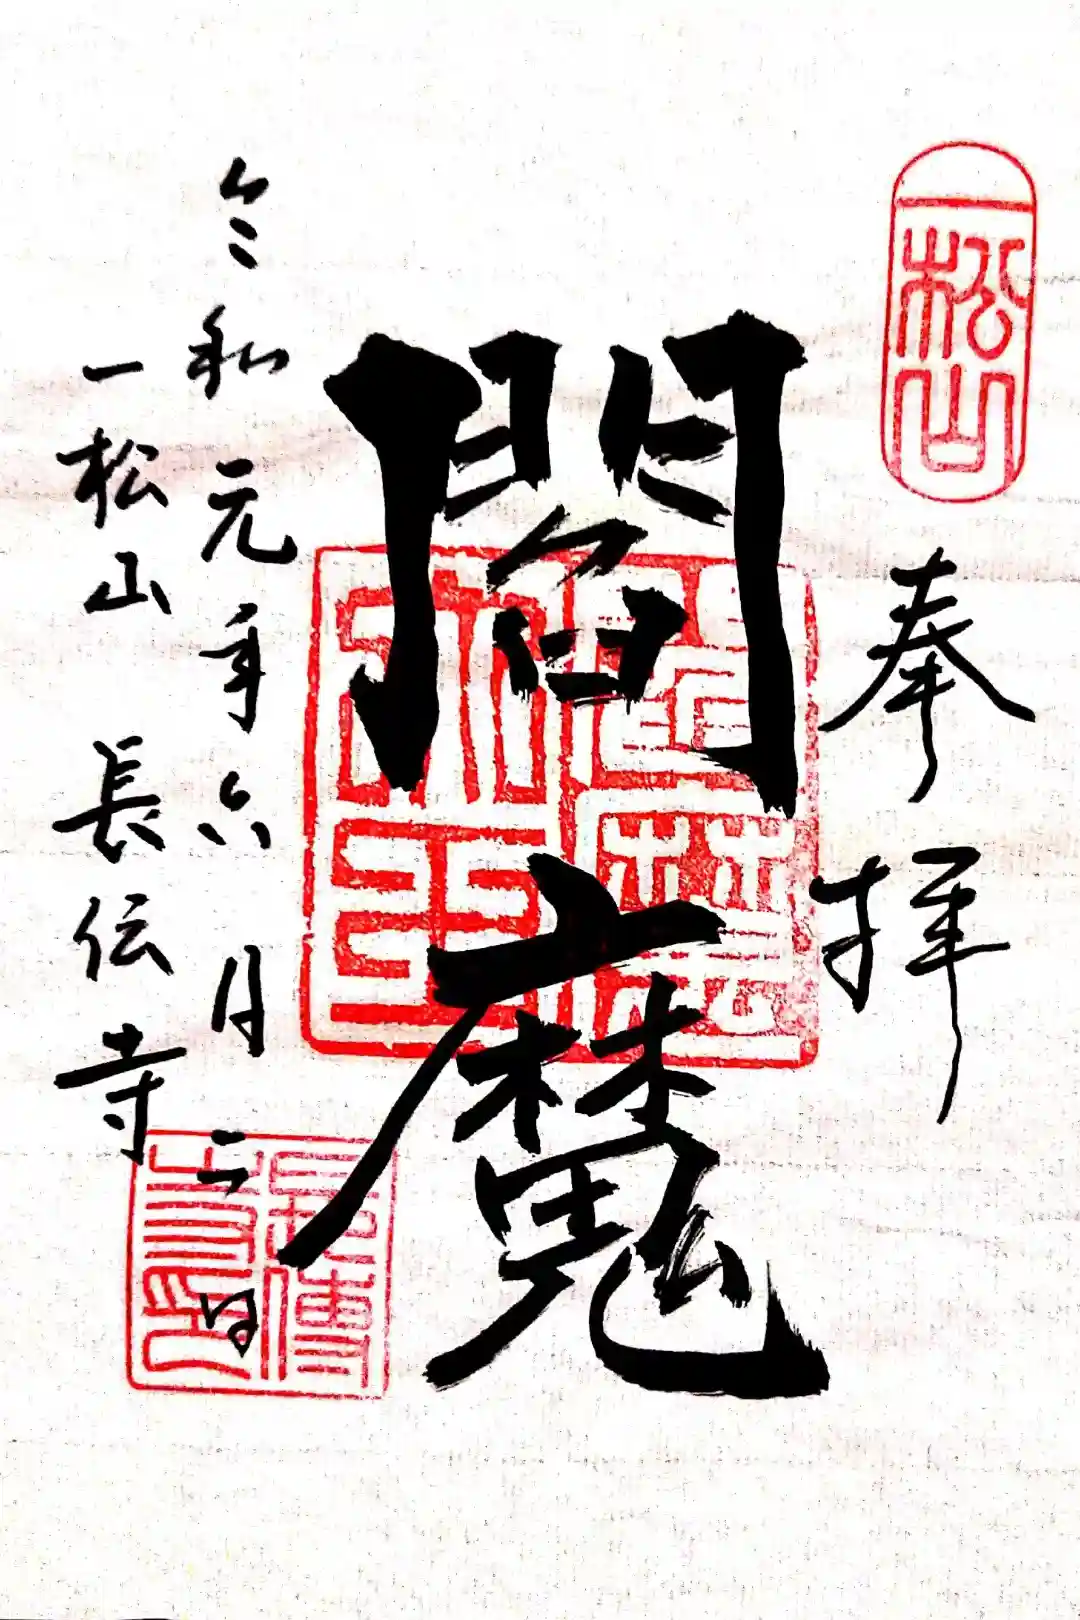 一松山
奉拝
閻魔
閻魔大王
令和元年六月二日
一松山 長伝寺
長傳寺印